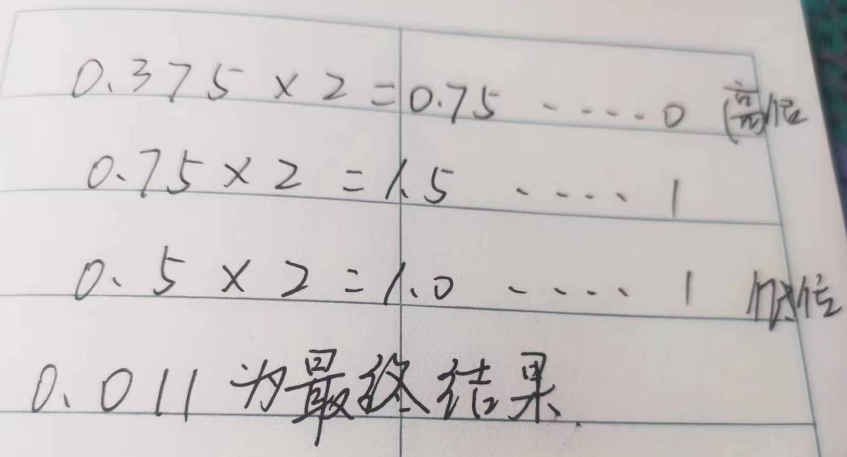 0.375 × 2 = 0.75 ····· 0 高位
0.75 × 2 = 1.5 ···· 1
0.5 × 2 = 1.0 ····· 1 低位
0.011 为最终结果.